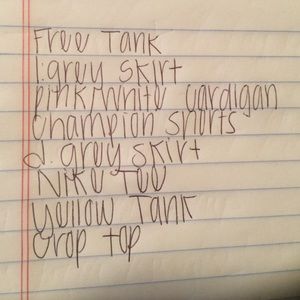 Free Tank
l.grey skirt
pink/white cardigan
champion shorts
d. grey skirt
Nike Tee
yellow Tank
crop top